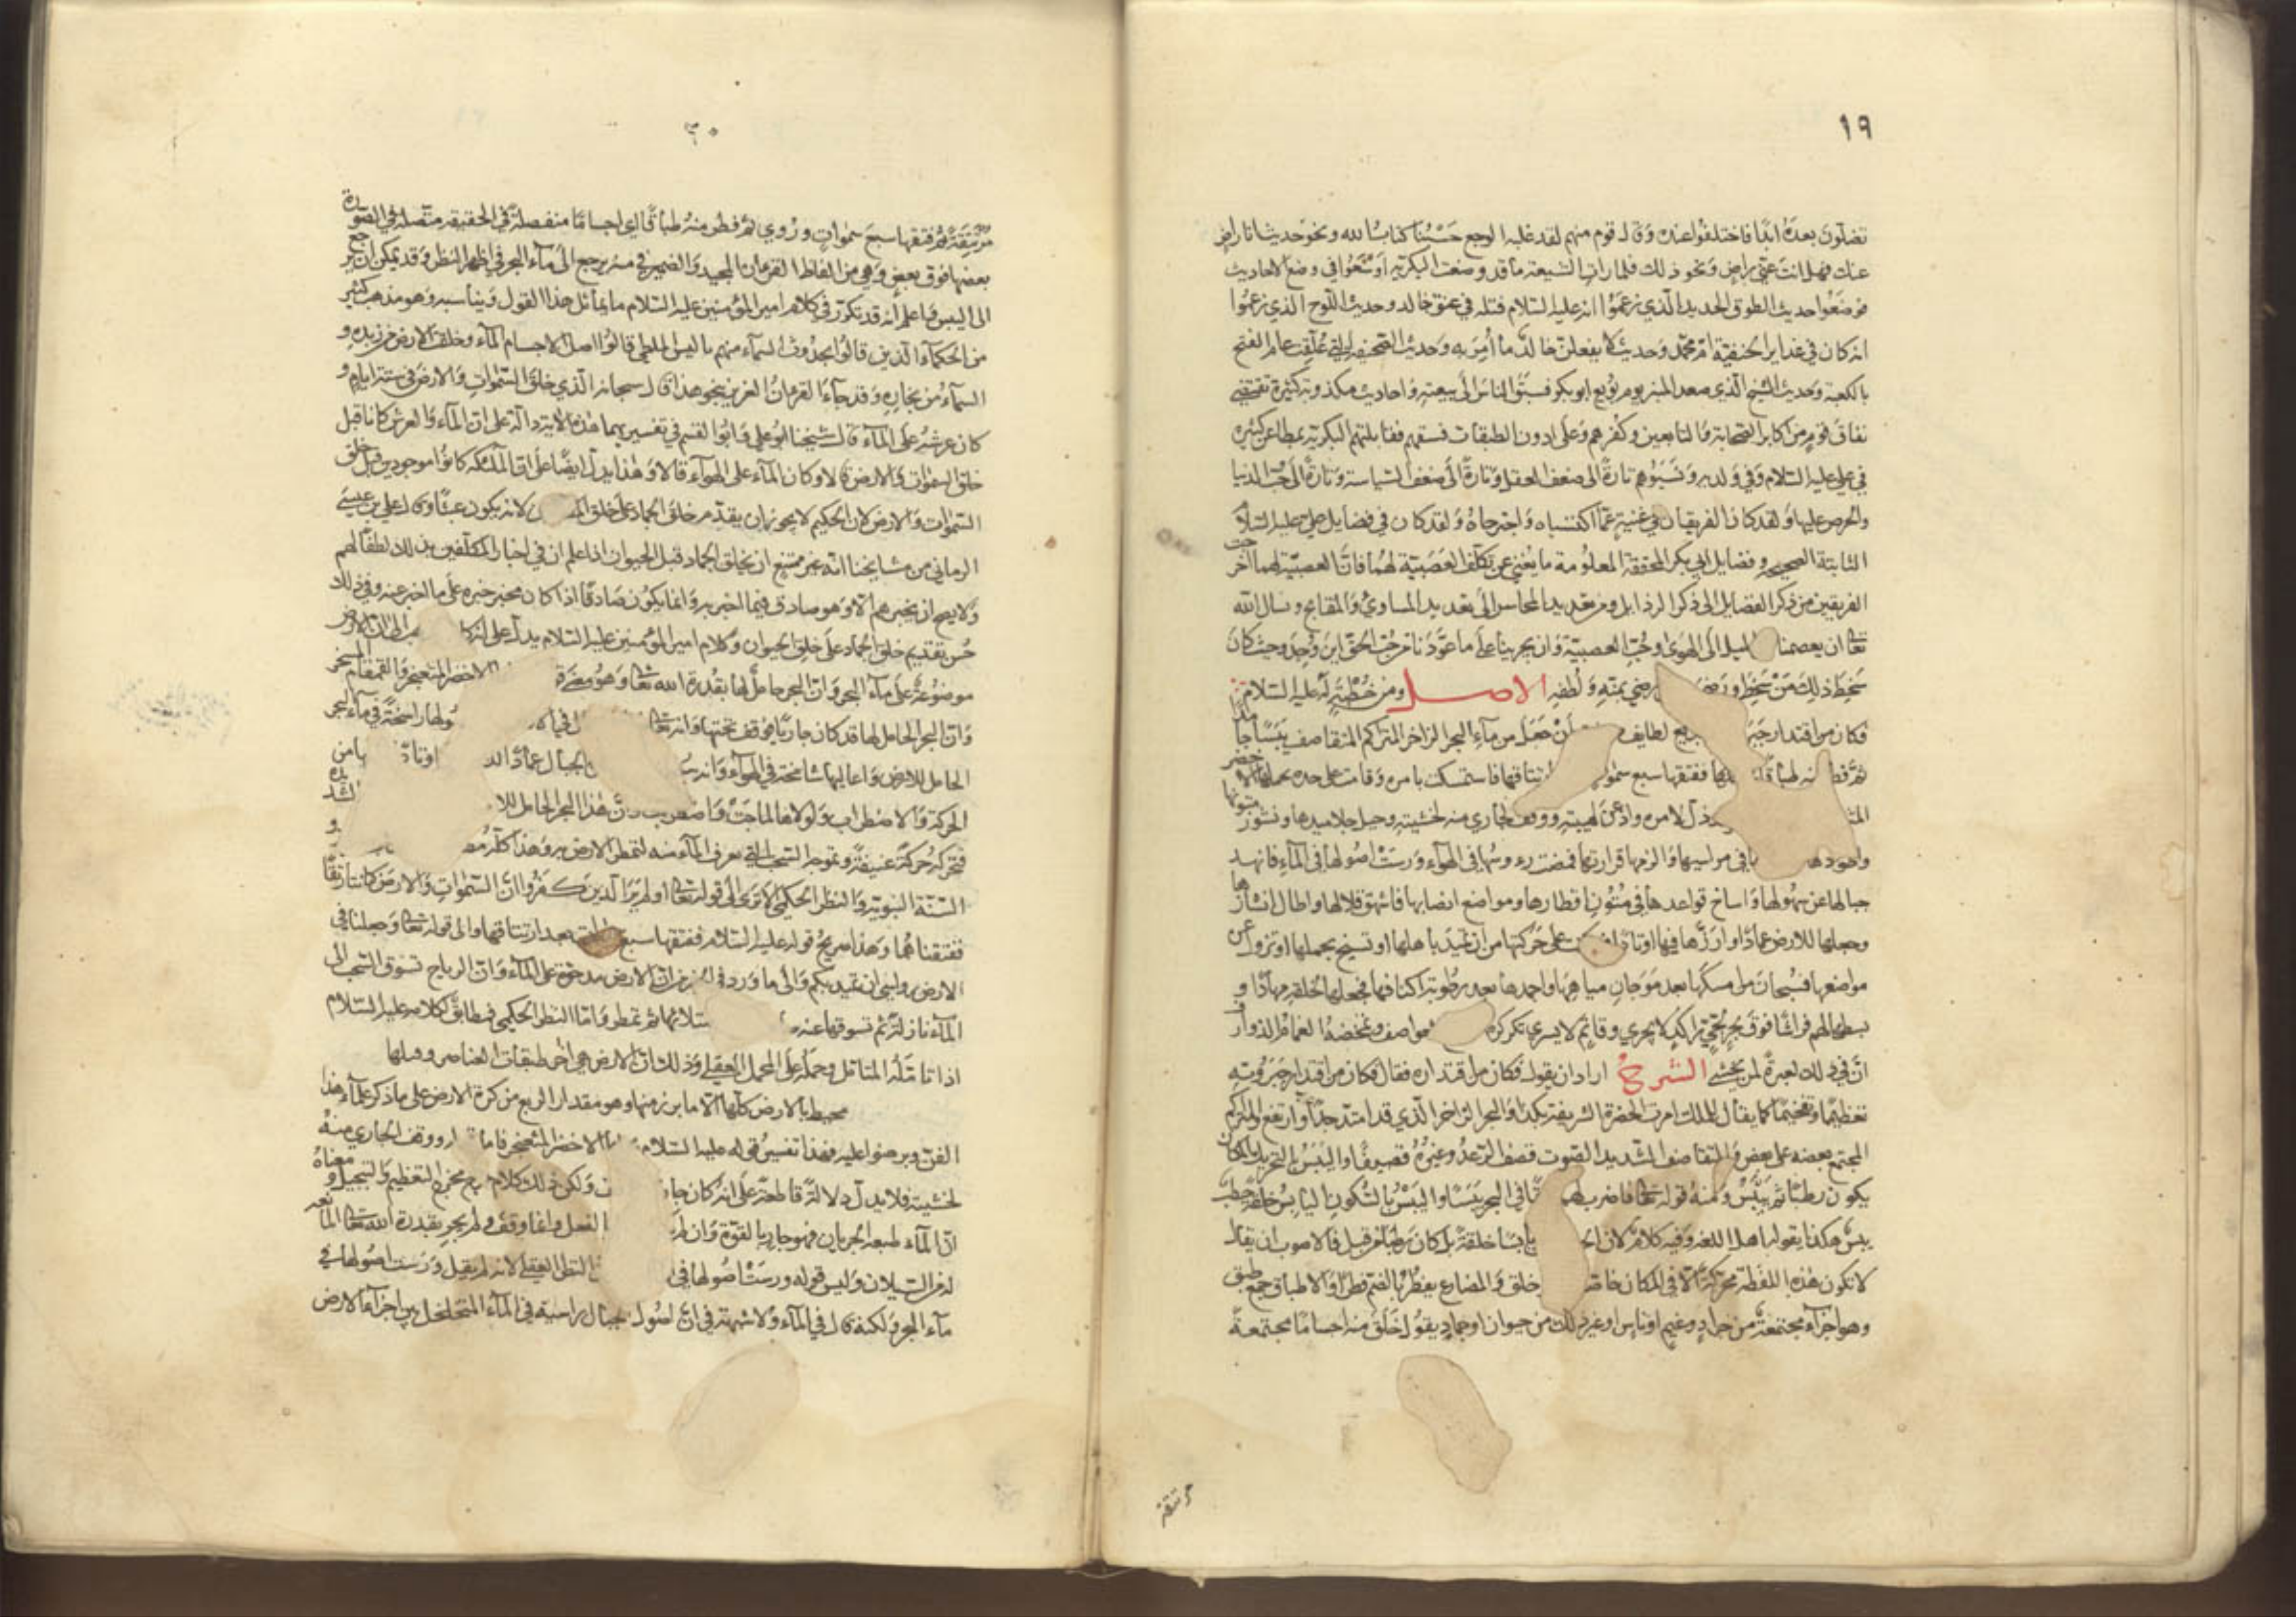 ١٩
تضلون بعده ابدًا فاختلفوا عنده وقال قوم منهم لقد غلبه الوجع حَسْبُنا كتاب الله ونحو حديث انا راض
عنك فهل انت عني راضٍ ونحو ذلك فلما رات الشيعة ما قد وضعت البكرية اوسعوا في وضع الاحاديث
فوضعوا حديث الطوق الحديد الذي زعموا انه عليه السلام فتله في عنق خالد وحديث اللوح الذي زعموا
انه كان في غداير الحنفية ام محمد وحديث لا يفعلن خالد ما أُمِرَ به وحديث الصحيفة التي عُلّقت عام الفتح
بالكعبة وحديث الشيخ الذي صعد المنبر يوم بويع ابو بكر فسبق الناس الى بيعته واحاديث مكذوبة كثيرة تقتضي
نفاق قوم من اكابر الصحابة والتابعين وكفرهم وعلى ادون الطبقات فسقهم فقابلتهم البكرية بمطاعن كثيره
في علي عليه السلام وفي ولديه ونَسَبُوهم تارةً الى ضعف العقل وتارةً الى ضعف السياسة وتارةً الى حب الدنيا
والحرص عليها ولقد كان الفريقان في غنية عما اكتسباه واجترحاه ولقد كان في فضايل علي عليه السلام
الثابتة الصحيحة وفضايل ابي بكر المحققة المعلومة ما يُغني عن تكلّف العَصَبيّة لهما فان العصبيّة لهما اخرجت
الفريقين من ذكر الفضايل الى ذكر الرذايل ومن تعديد المحاسن الى تعديد المساوئ والمقابح ونسال الله
تعالى ان يعصمنا الميل الى الهوى وحُبّ العصبيّة وان يجرينا على ما عوّدنا من حُبّ الحقّ اين وُجِدَ وحيث كان
سَخِطَ ذلك مَنْ سَخِطَ ورَضِ رضي بمنّه ولُطفِه الاصل ومن خُطْبةٍ له عليه السلام
فكان من اقتدار جبر لطايف أنْ جَعَلَ من ماءِ البحر الزاخر المتراكم المتقاصف يَبَسًا جامدًا
ثم فطر منه طباقًا ففتقها سبع سمو ارتتاقها فاستمسكت بامره وقامت على حده يحملها الاخضر
المث ذلّ لامره واذعن لهيبته ووقف الجاري منه لخشيته وجبل جلاميدها ونشوز متونها
واطودها في مراسيها والزمها قرارتها فمضت رءوسُها في الهواء ورَسَتْ اصُولها في الماءِ فانهد
جبالها عن سُهُولها واساخ قواعدها في مُتُون اقطارها ومواضع انصابها فاشهق قلالها واطال انشازها
وجعلها للارض عمادًا وارزّها فيها اوتادًا على حَرَكتها من ان تميدَ باهلها او تسيخ بحملها او تزول عن
مواضعها فسُبْحان من امسكها بعد مَوَجانِ مياهِها واجمدها بعد رطوبة اكنافها فجعلها لخلقه مهادًا و
بسطها لهم فراشًا فوق بحرٍ لُجّي راكدٍ لا يجري وقايمٍ لا يسري تكركره العواصف وتمخضه الغمام الذوارف
انّ في ذلك لعبرةً لمن يخشى الشرح اراد ان يقول فكان من اقتداره فقال فكان من اقتدار جَبَروُته
تعظيمًا وتفخيمًا كما يقال للملك امرت الحضرة الشريفة بكذا والبحر الزاخر الذي قد امتد جدًّا وارتفع والمتراكم
المجتمع بعضه على بعض والمتقاصف الشديد الصوت قصف الرعدُ وغيرُهُ قصيفًا واليَبَسُ بالتحريك المكان
يكون رطبًا ثم يَيْبَسُ ومنه قوله تعالى فاضرب لهم في البحر يَبَسًا واليَبْسُ بالسُكُون اليابسُ خلقةً حطبٌ
يبسٌ هكذا يقول اهل اللغة وفيه كلام لان ال يابسًا خلقةً بل كان رطبًا من قبل فالاصوب ان يقال
لا تكون هذه اللفظة محركة الا في المكان خاصة خلق والمضارع يفطُرُ بالضم فطرًا والاطباق جمع طبق
وهو اجزاء مجتمعة من جراد وغيم او ناس او غير ذلك من حيوان او جماد يقول خَلَقَ منه اجسامًا مجتمعة
مرتتقة
٢٠
مُرْتتِقَةً ثم فتقها سبعَ سمواتٍ ورُوي ثم فطر منه طباقًا اي اجسامًا منفصلةً في الحقيقه متّصلة في الصورة
بعضها فوق بعض وهي من الفاظ القرءان المجيد والضمير في منه يرجع الى ماء البحر في اظهر النظر وقد يمكن ان يرجع
الى اليبس واعلم انه قد تكرّر في كلام امير المؤمنين عليه السلام ما يماثل هذا القول ويناسبه وهو مذهب كثير
من الحكماء الذين قالوا بحدوث السماء منهم ثاليس الملطي قالوا اصل الاجسام الماء وخلقت الارض من زبده و
السماء من بخاره وقد جاءَ القرءان العزيز بنحو هذا قال سبحانه الذي خلق السموات والارض في ستة ايام و
كان عرشُه على الماء قال شيخنا ابو علي وابو القسم في تفسيريهما هذه الاية دالة على ان الماءَ والعرش كانا قبل
خلق السموات والارض قالا وكان الماء على الهواء قالا وهذا يدل ايضًا على ان الملئكة كانوا موجودين قبل خلق
السموات والارض لان الحكيم لا يجوز ان يقدّم خلق الجماد على خلق لانه يكون عبثًا وقال علي بن عيسى
الرماني من مشايخنا انه غير ممتنع ان يخلق الجماد قبل الحيوان اذا علم ان في اخبار المكلّفين بذلك لطفًا لهم
ولا يصح ان يخبرهم الا وهو صادق فيما اخبر به وانما يكون صادقًا اذا كان مخبر خبره على ما اخبر عنه وفي ذلك
حُسن تقديم خلق الجماد على خلق الحيوان وكلام امير المؤمنين عليه السلام يدل على انه كا الى ان الارض
موضوعة على ماء البحر وان البحر حاملٌ لها بقُدرة الله تعالى وهو معنى ق الاخضر المثعنجر والقمقام المسخر
وان البحر الحامل لها قد كان جاريًا فوقف تحتها وانه تعالى في الا ولها راسخةً في ماء البحر
الحامل للارض واعاليها شامخة في الهواء وانه سب الجبال عمادًا لل اوتادً ها من
الحركة والاضطراب ولولاها لماجَتْ واضطربت وان هذا البحر الحامل للا الشديده
فتحركه حركةً عنيفةً وتموجه السحب التي تغرف الماء منه لتمطر الارض به وهذا كلّه مُط و
السنّة النبويّة والنظر الحكمي الا ترى الى قوله تعالى اولم يَرَ الذين كفروا انّ السموات والارض كانتا رتقًا
ففتقناهُما وهذا صريحُ قوله عليه السلام ففتقها سبع بعد ارتتاقها والى قوله تعالى وجعلنا في
الارض رواسي ان تميد بكم والى ما ورد في من انّ الارض مدحوّة على الماء وانّ الرياح تسوق السحب الى
الماء نازلةً ثم تسوقها عنه تلائها ثم تمطر وامّا النظر الحكمي فمطابقٌ لكلامه عليه السلام
اذا تامّله المتامّل وحمله على المحمل العقلي وذلك لانّ الارض هي اخر طبقات العناصر وقبلها
محيط بالارض كلّها الا ما برز منها وهو مقدار الربع من كرة الارض على ما ذكر علماء هذا
الفن وبرهنوا عليه فهذا تفسيرُ قوله عليه السلام الاخضر المثعنجر فاما ووقف الجاري منه
لخشيته فلا يدل دلالةً قاطعةً على انه كان جاريًا ولكن ذلك كلام مخرج التعظيم والتبجيل ومعناهُ
انّ الماء طبعه الجريان فهو جارٍ بالقوّة وان لم الفعل وانما وقف ولم يجرِ بقدرة الله تعالى المانعه
له من السيلان وليس قوله ورَسَتْ اصُولها في النظر العقلي لانه لم يقل ورَست اصُولها في
ماء البحر ولكنه قال في الماء ولا شبهة في انّ اصُول الجبال راسية في الماء المتخلخل بين اجزاء الارض